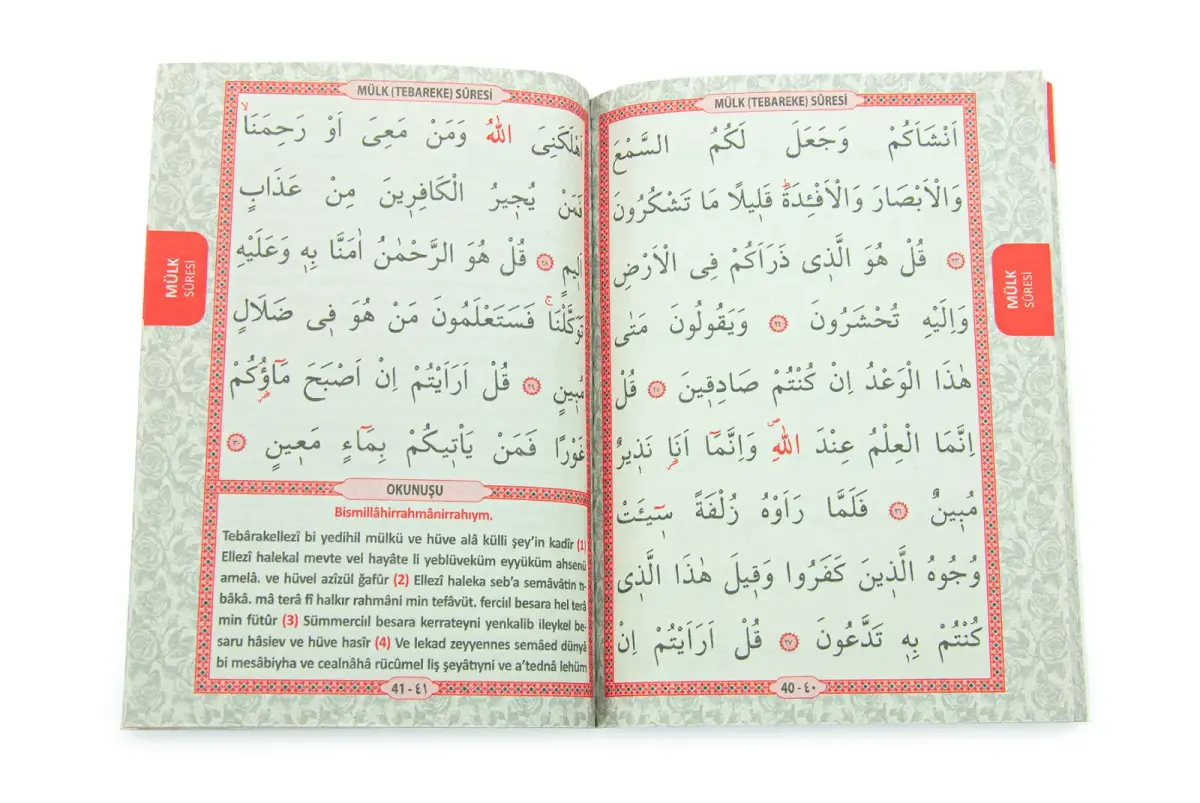 MÜLK (TEBAREKE) SÛRESİ
اَنْشَاَكُمْ وَجَعَلَ لَكُمُ السَّمْعَ
وَالْاَبْصَارَ وَالْاَفْـِٔدَةَۜ قَل۪يلًا مَا تَشْكُرُونَ
﴿٢٣﴾ قُلْ هُوَ الَّذ۪ي ذَرَاَكُمْ فِى الْاَرْضِ
وَاِلَيْهِ تُحْشَرُونَ ﴿٢٤﴾ وَيَقُولُونَ مَتٰى
هٰذَا الْوَعْدُ اِنْ كُنْتُمْ صَادِق۪ينَ ﴿٢٥﴾ قُلْ
اِنَّمَا الْعِلْمُ عِنْدَ اللّٰهِۖ وَاِنَّمَٓا اَنَا۬ نَذ۪يرٌ
مُب۪ينٌ ﴿٢٦﴾ فَلَمَّا رَاَوْهُ زُلْفَةً س۪ٓيـَٔتْ
وُجُوهُ الَّذ۪ينَ كَفَرُوا وَق۪يلَ هٰذَا الَّذ۪ى
كُنْتُمْ بِه۪ تَدَّعُونَ ﴿٢٧﴾ قُلْ اَرَاَيْتُمْ اِنْ
40 - ٤٠
MÜLK
SÛRESİ
MÜLK (TEBAREKE) SÛRESİ
اَهْلَكَنِىَ اللّٰهُ وَمَنْ مَعِىَ اَوْ رَحِمَنَاۙ
فَمَنْ يُج۪يرُ الْكَافِر۪ينَ مِنْ عَذَابٍ
اَل۪يمٍ ﴿٢٨﴾ قُلْ هُوَ الرَّحْمٰنُ اٰمَنَّا بِه۪ وَعَلَيْهِ
تَوَكَّلْنَاۚ فَسَتَعْلَمُونَ مَنْ هُوَ ف۪ى ضَلَالٍ
مُب۪ينٍ ﴿٢٩﴾ قُلْ اَرَاَيْتُمْ اِنْ اَصْبَحَ مَٓاؤُ۬كُمْ
غَوْرًا فَمَنْ يَاْت۪يكُمْ بِمَٓاءٍ مَع۪ينٍ ﴿٣٠﴾
OKUNUŞU
Bismillâhirrahmânirrahıym.
Tebârakellezî bi yedihil mülkü ve hüve alâ külli şey’in kadîr (1)
Ellezî halekal mevte vel hayâte li yeblüveküm eyyüküm ahsenü
amelâ. ve hüvel azîzül ğafûr (2) Ellezî haleka seb’a semâvâtin tı-
bâkâ. mâ terâ fî halkır rahmâni min tefâvüt. ferciıl besara hel terâ
min fütûr (3) Sümmerciıl besara kerrateyni yenkalib ileykel be-
saru hâsiev ve hüve hasîr (4) Ve lekad zeyyennes semâed dünyâ
bi mesâbiyha ve cealnâhâ rücûmel liş şeyâtıyni ve a’tednâ lehüm
41 - ٤١
MÜLK
SÛRESİ